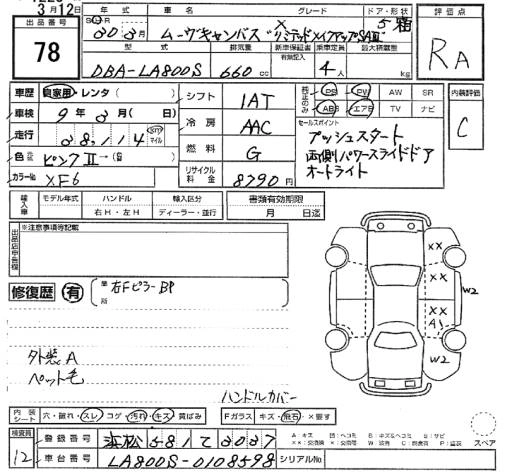 3月12日
出品番号
78
年式 車名 グレード ドア・形状
30年3月 ムーヴキャンバス "X リミテッドメイクアップSAⅢ" 5 箱
型式 排気量 新車保証書 有無記入 乗車定員 最大積載量
DBA-LA800S 660cc 4人 kg
評価点
RA
車歴 自家用・レンタ( )
車検 9年3月( 日)
走行 38,114 km マイル
色 ピンクⅡ→( )
カラーNo XF6
シフト 1AT
冷房 AAC
燃料 G
リサイクル料金 8790円
純正のみ PS PW AW SR
ABS エアB TV ナビ
セールスポイント
プッシュスタート
両側パワースライドドア
オートライト
内装評価
C
輸入車 モデル年式 ハンドル 輸入区分
右H・左H ディーラー・並行
書類有効期限
月 日迄
出品店申告欄
※注意事項等記載
修復歴 有
箇所 右FピラーBP
XX
XX
W2
XX
A1
W2
外装A
ペット毛
ハンドルカバー
内装シート 穴・破れ・スレ・コゲ・汚れ・キズ・黄ばみ
Fガラス キズ・飛石・×要す
スペア
検査員
12
登録番号 浜松 581 て 3037
車台番号 LA800S-0108598
シリアルNo